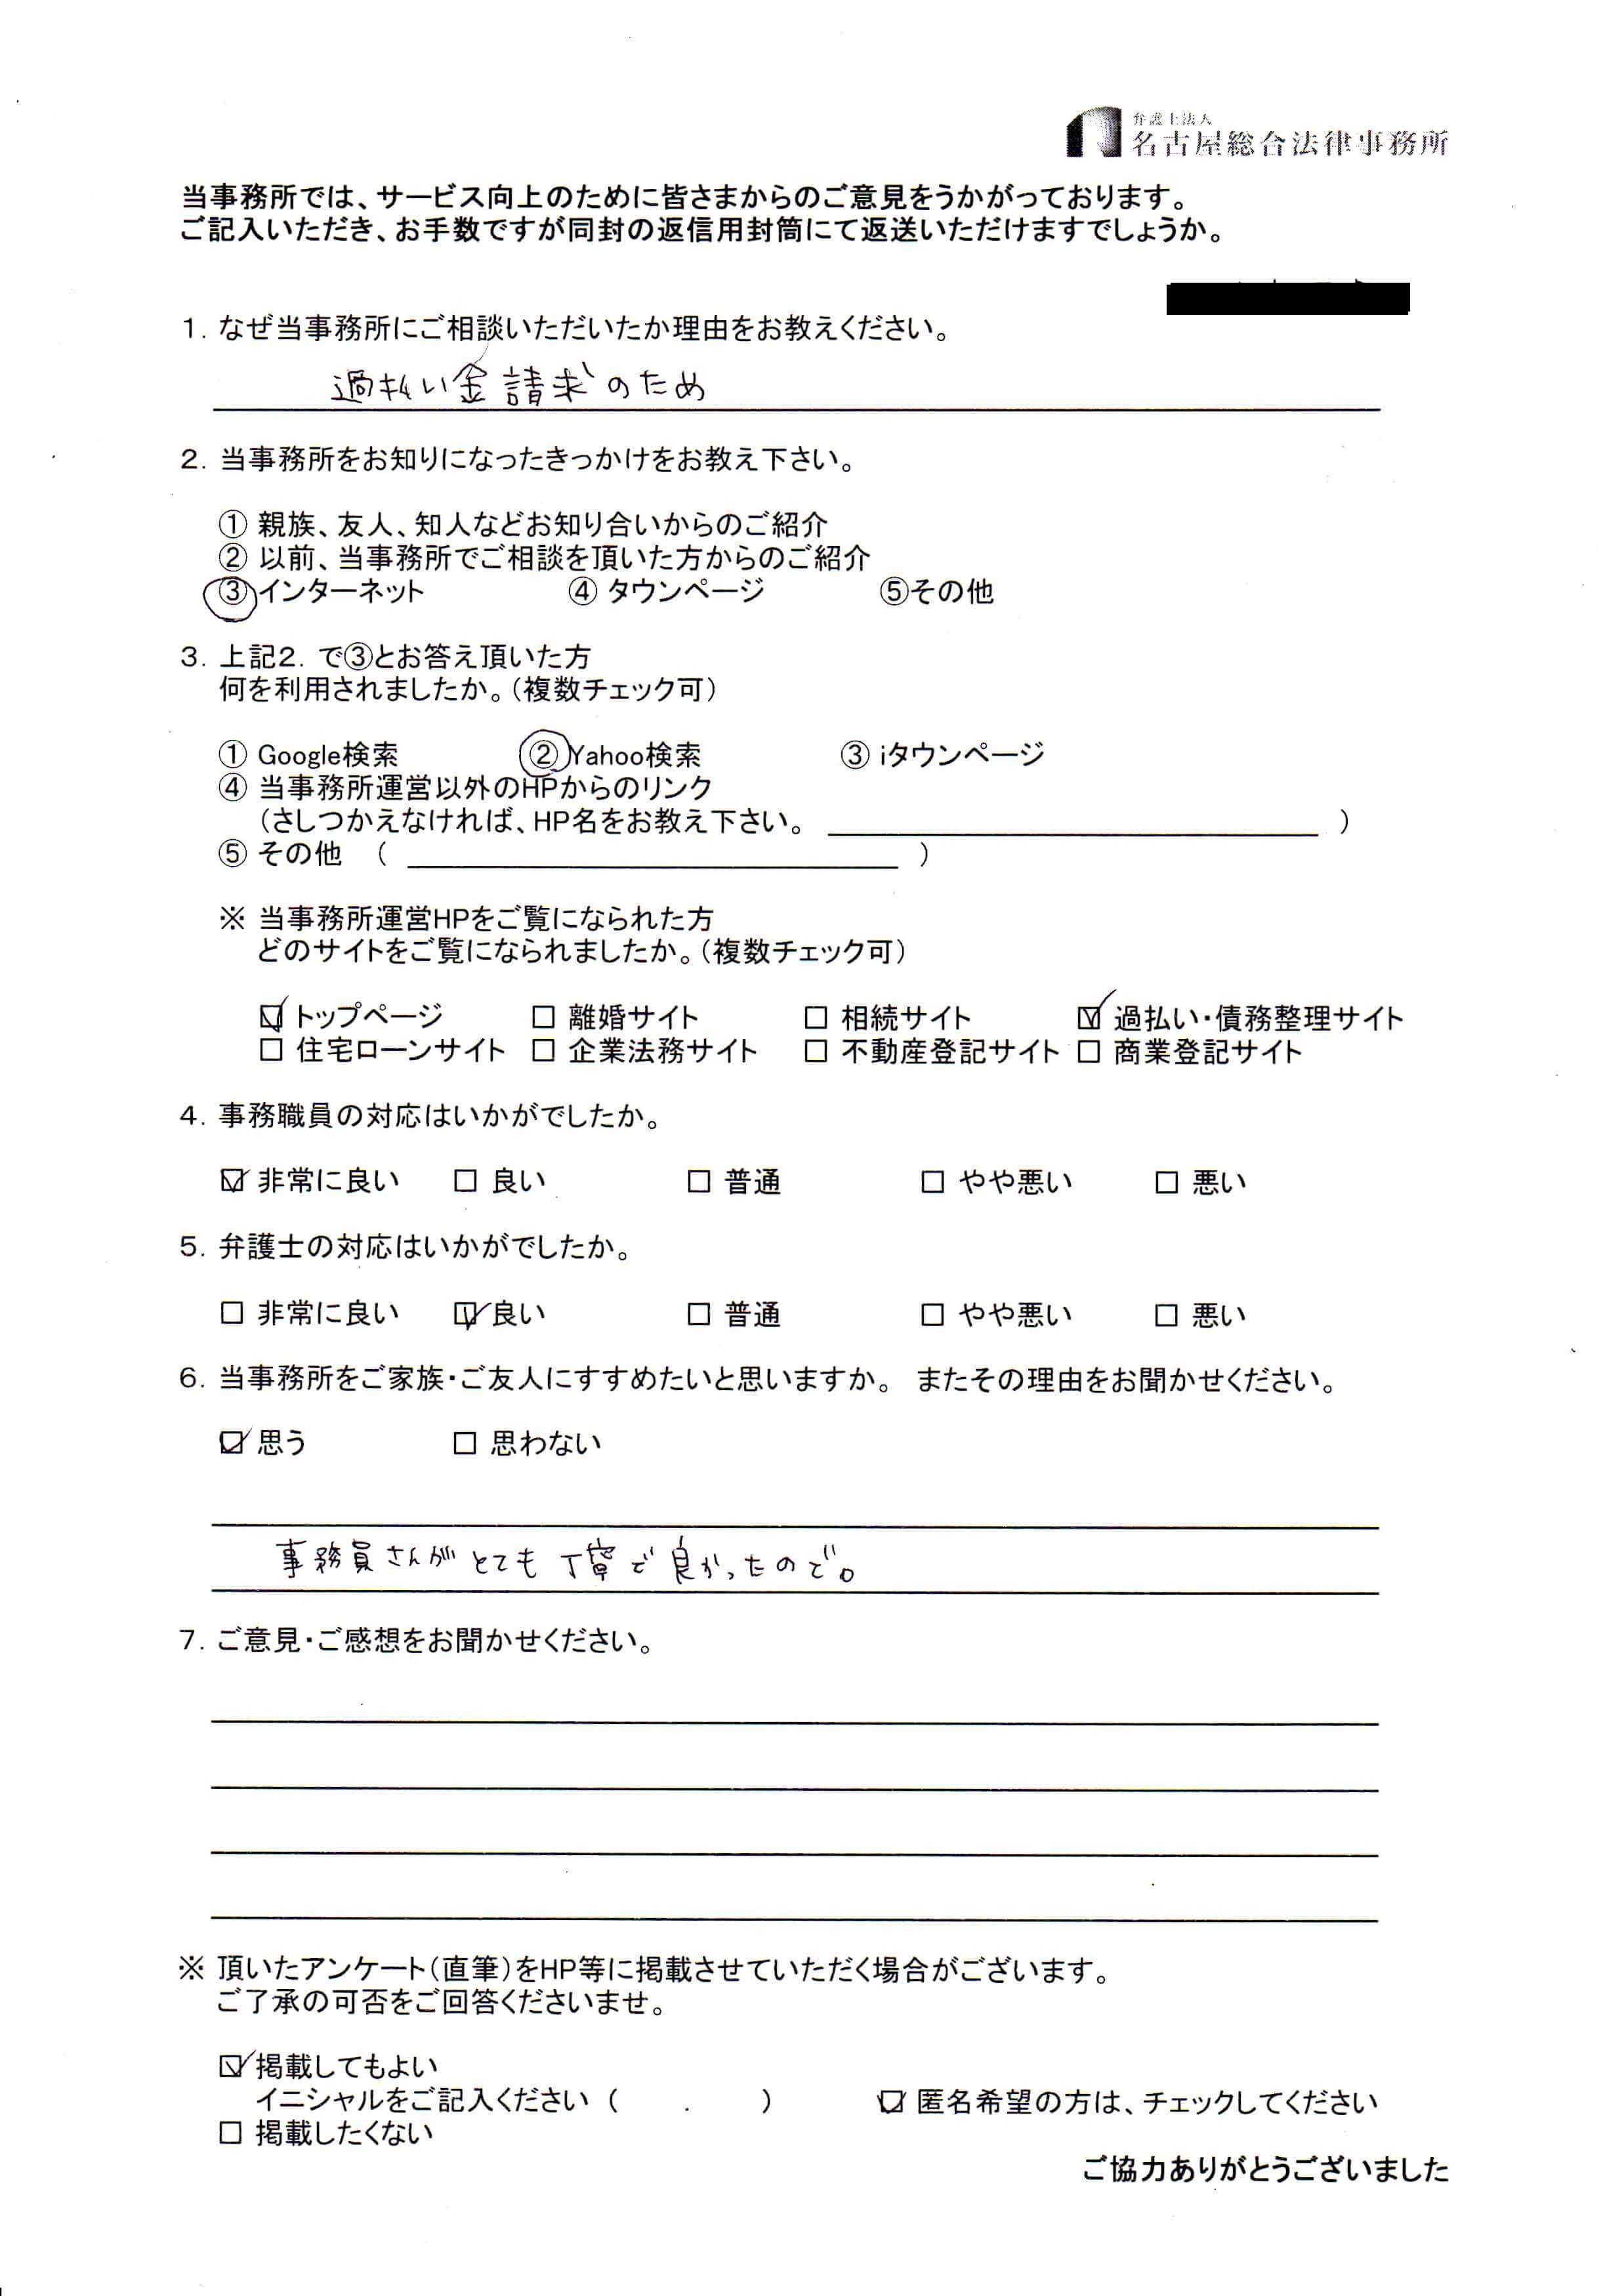 弁護士法人
名古屋総合法律事務所
当事務所では、サービス向上のために皆さまからのご意見をうかがっております。
ご記入いただき、お手数ですが同封の返信用封筒にて返送いただけますでしょうか。
1. なぜ当事務所にご相談いただいたか理由をお教えください。
過払い金請求のため
2. 当事務所をお知りになったきっかけをお教え下さい。
① 親族、友人、知人などお知り合いからのご紹介
② 以前、当事務所でご相談を頂いた方からのご紹介
③ インターネット ④ タウンページ ⑤その他
3. 上記2. で③とお答え頂いた方
何を利用されましたか。(複数チェック可)
① Google検索 ② Yahoo検索 ③ iタウンページ
④ 当事務所運営以外のHPからのリンク
(さしつかえなければ、HP名をお教え下さい。 )
⑤ その他 ( )
※ 当事務所運営HPをご覧になられた方
どのサイトをご覧になられましたか。(複数チェック可)
☑ トップページ □ 離婚サイト □ 相続サイト ☑ 過払い・債務整理サイト
□ 住宅ローンサイト □ 企業法務サイト □ 不動産登記サイト □ 商業登記サイト
4. 事務職員の対応はいかがでしたか。
☑ 非常に良い □ 良い □ 普通 □ やや悪い □ 悪い
5. 弁護士の対応はいかがでしたか。
□ 非常に良い ☑ 良い □ 普通 □ やや悪い □ 悪い
6. 当事務所をご家族・ご友人にすすめたいと思いますか。 またその理由をお聞かせください。
☑ 思う □ 思わない
事務員さんがとても丁寧で良かったので。
7. ご意見・ご感想をお聞かせください。
※ 頂いたアンケート(直筆)をHP等に掲載させていただく場合がございます。
ご了承の可否をご回答くださいませ。
☑ 掲載してもよい
イニシャルをご記入ください ( . ) ☑ 匿名希望の方は、チェックしてください
□ 掲載したくない
ご協力ありがとうございました